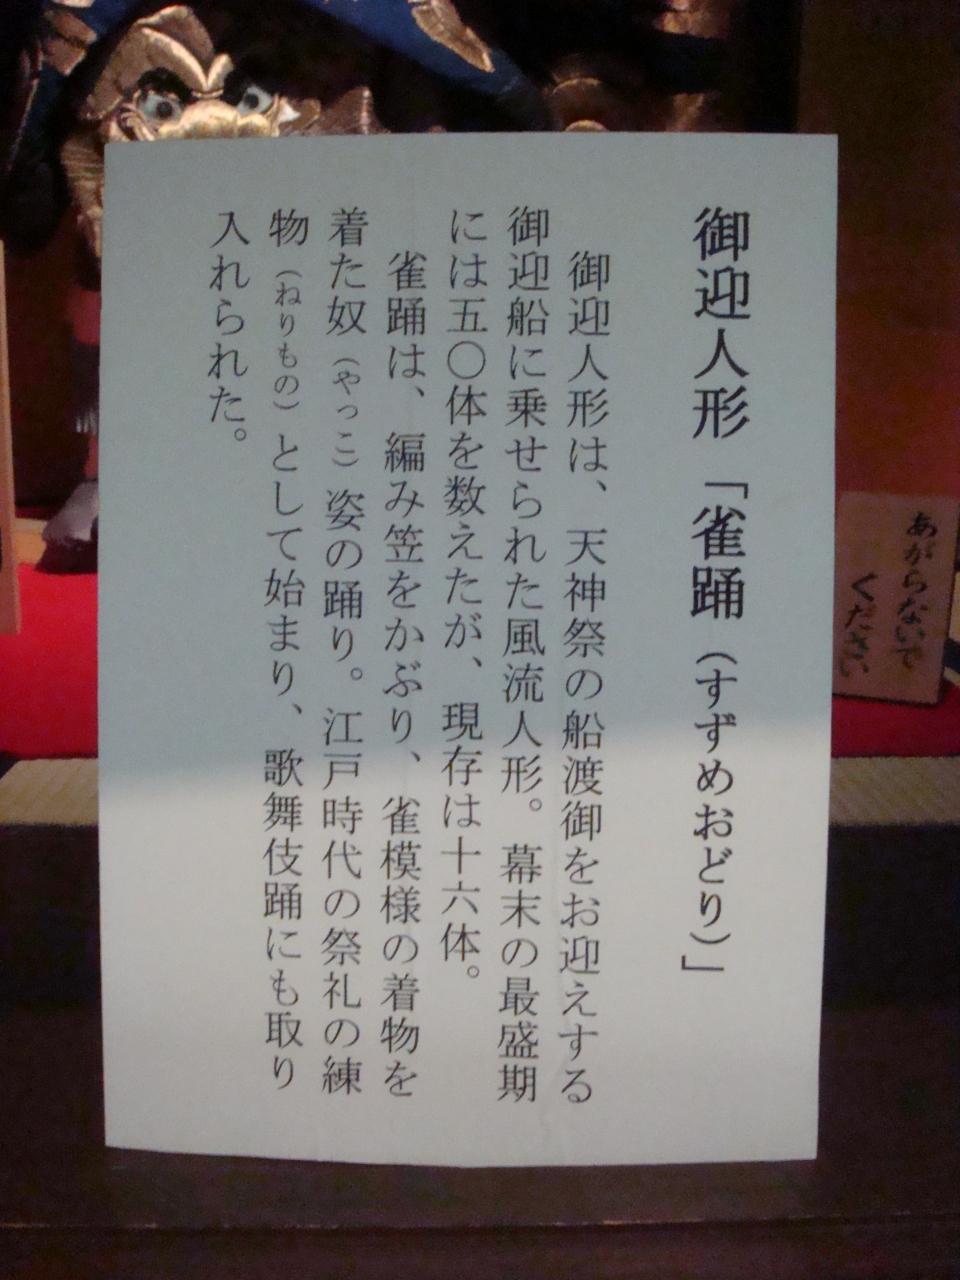 御迎人形「雀踊（すずめおどり）」
御迎人形は、天神祭の船渡御をお迎えする
御迎船に乗せられた風流人形。幕末の最盛期
には五〇体を数えたが、現存は十六体。
雀踊は、編み笠をかぶり、雀模様の着物を
着た奴（やっこ）姿の踊り。江戸時代の祭礼の練
物（ねりもの）として始まり、歌舞伎踊にも取り
入れられた。
あがらないで
ください